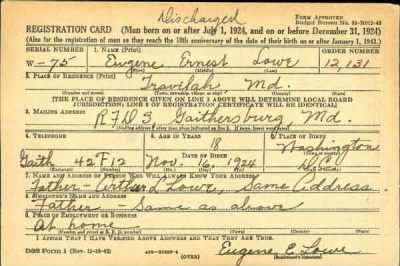 Discharged
FORM APPROVED
REGISTRATION CARD (Men born on or after July 1, 1924, and on or before December 31, 1924)
(Also for the registration of men as they reach the 18th anniversary of the date of their birth on or after January 1, 1943.)
SERIAL NUMBER 1. NAME (Print) ORDER NUMBER
W-75 Eugene Ernest Lowe 12,131
(First) (Middle) (Last)
2. PLACE OF RESIDENCE (Print)
Travilah, Md.
[THE PLACE OF RESIDENCE GIVEN ON LINE 2 ABOVE WILL DETERMINE LOCAL BOARD
JURISDICTION; LINE 2 OF REGISTRATION CERTIFICATE WILL BE IDENTICAL]
3. MAILING ADDRESS
RFD 3 Gaithersburg, Md.
4. TELEPHONE 5. AGE IN YEARS 6. PLACE OF BIRTH
18 Washington
DATE OF BIRTH
Gaith 42F12 Nov. 16, 1924 D.C.
7. NAME AND ADDRESS OF PERSON WHO WILL ALWAYS KNOW YOUR ADDRESS
Father - Lowe, Same Address.
8. EMPLOYER'S NAME AND ADDRESS
Father - Same as above
9. PLACE OF EMPLOYMENT OR BUSINESS
At home
I AFFIRM THAT I HAVE VERIFIED ABOVE ANSWERS AND THAT THEY ARE TRUE.
DSS Form 1 Eugene E Lowe
(Registrant's signature)